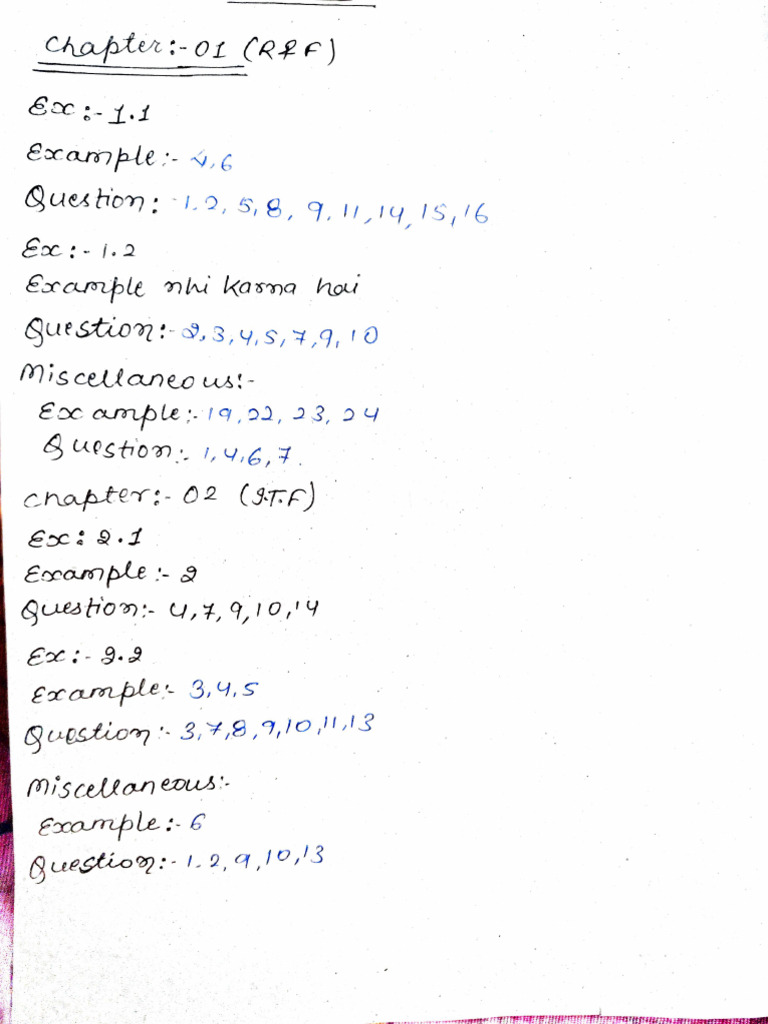 Chapter:-01 (R&F)
Ex:-1.1
Example:- 4,6
Question:-1.2,5,8, 9,11,14,15,16
Ex:-1.2
Example nhi karna hai
Question:-2,3,4,5,7,9,10
Miscellaneous:-
Example:-19,22,23,24
Question:-1,4,6,7.
Chapter:-02 (I.T.F)
Ex: 2.1
Example:-2
Question:- 4,7,9,10,14
Ex:-2.2
Example:- 3,4,5
Question:- 3,7,8,9,10,11,13
Miscellaneous:-
Example:-6
Question:-1.2,9,10,13